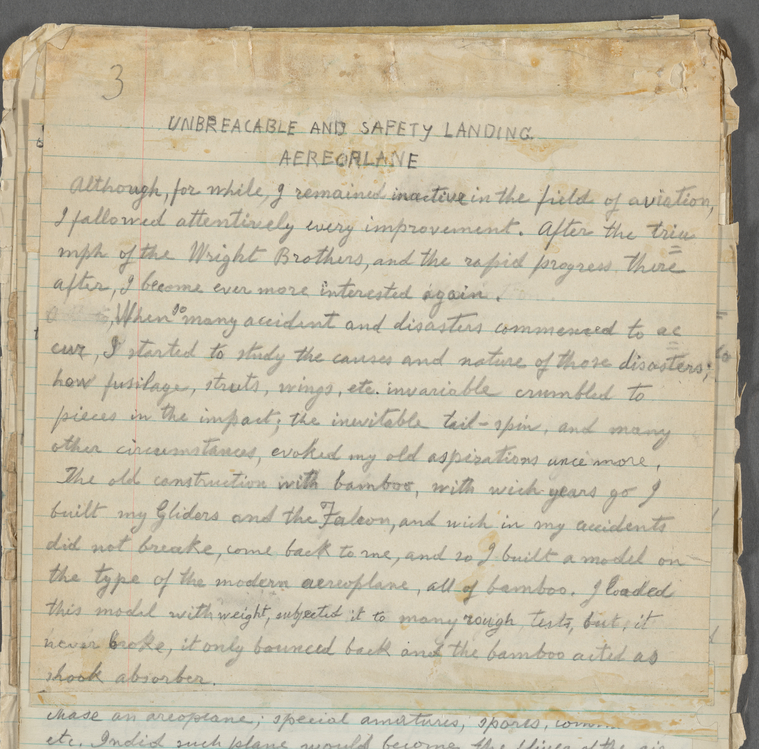 3
UNBREACABLE AND SAFETY LANDING
AEREOPLANE
Although, for while, I remained inactive in the field of aviation,
I fallowed attentively every improvement. After the triu
mph of the Wright Brothers, and the rapid progress there
after, I become ever more interested again.
When so many accident and disasters commenced to ac
cur, I started to study the causes and nature of those disasters;
how fusilage, struts, wings, etc. invariable crumbled to
pieces in the impact; the inevitable tail-spin, and many
other circumstances, evoked my old aspirations unce more.
The old construction with bamboo, with wich years go I
built my Gliders and the Falcon, and wich in my accidents
did not breake, come back to me, and so I built a model on
the type of the modern aereoplane, all of bamboo. I loaded
this model with weight, subjected it to many rough tests, but, it
never broke, it only bounced back and the bamboo acted as
shock absorber.
chase an areoplane; special
etc. Indid such plane would become the